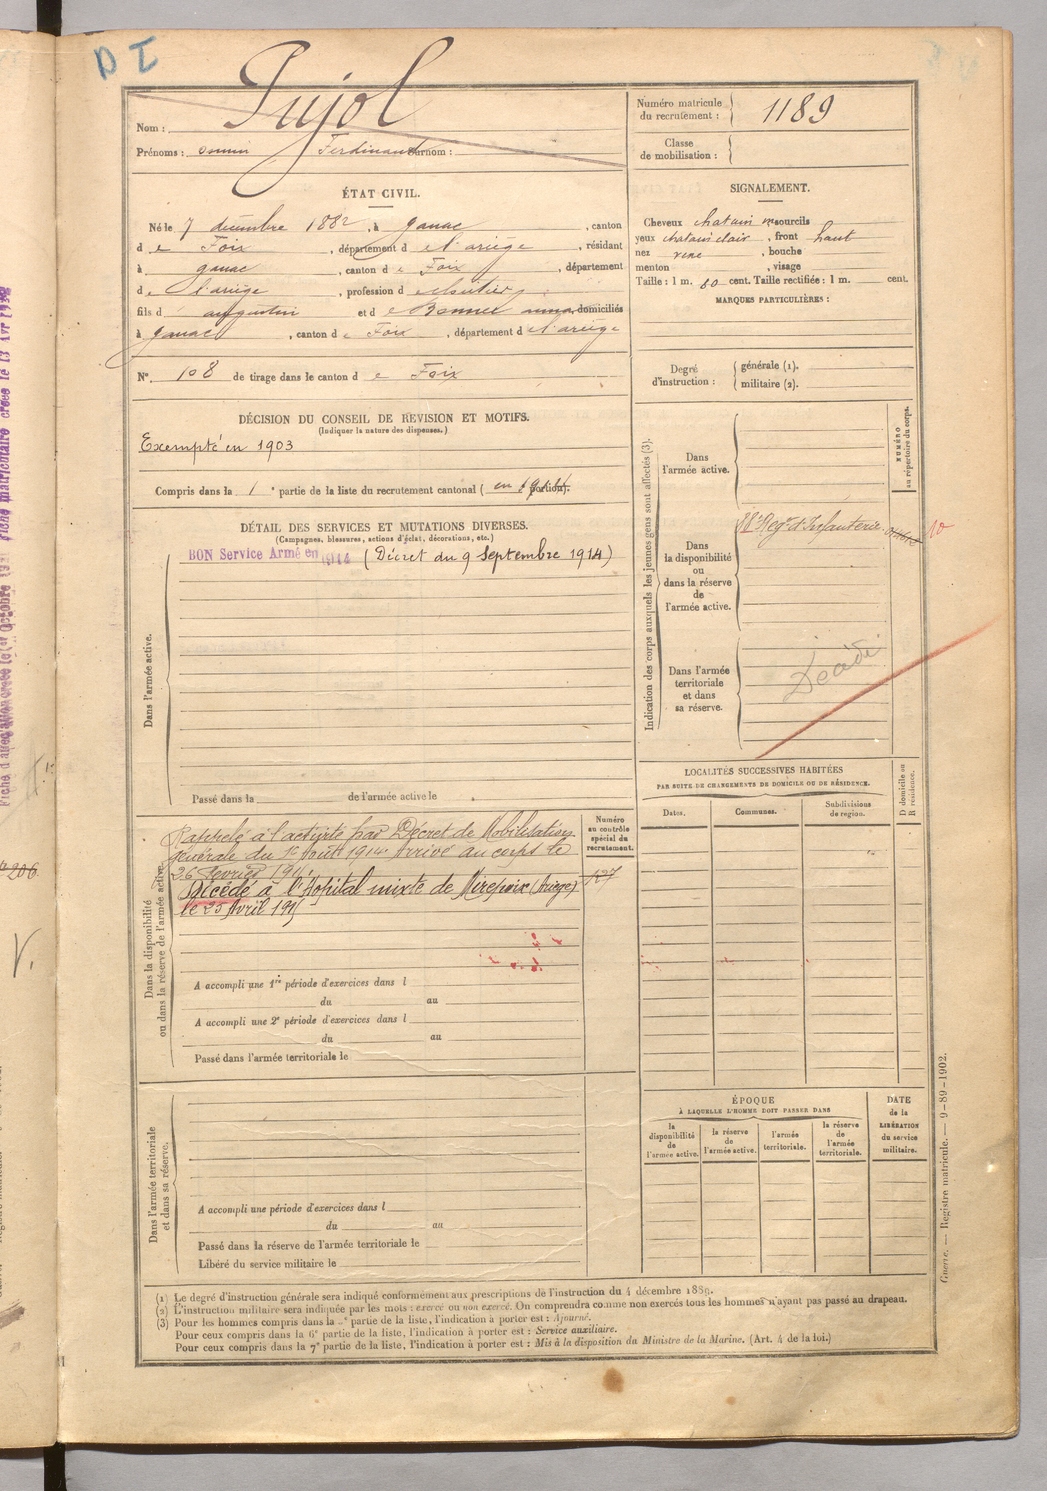 D I
Pujol
Nom :
Prénoms : Ferdinand Surnom :
Numéro matricule du recrutement : 1189
Classe de mobilisation :
ÉTAT CIVIL.
Né le 7 décembre 1882, à Ganac, canton
de Foix, département de l'ariège, résidant
à ganac, canton de Foix, département
de l'ariège, profession de
fils d'augustin et de Bonnel anna domiciliés
à ganac, canton de Foix, département de l'ariège
N° 108 de tirage dans le canton de Foix
SIGNALEMENT.
Cheveux chatain sourcils
yeux chatain clair, front haut
nez, bouche
menton, visage
Taille : 1 m. 60 cent. Taille rectifiée : 1 m. cent.
MARQUES PARTICULIÈRES :
Degré d'instruction : générale (1).
militaire (2).
DÉCISION DU CONSEIL DE REVISION ET MOTIFS.
(Indiquer la nature des dispenses.)
Exempté en 1903
Compris dans la 1e partie de la liste du recrutement cantonal (en portion).
DÉTAIL DES SERVICES ET MUTATIONS DIVERSES.
(Campagnes, blessures, actions d'éclat, décorations, etc.)
BON Service Armé en 1914 (Décret du 9 Septembre 1914)
Dans l'armée active.
Passé dans la de l'armée active le
Indication des corps auxquels les jeunes gens sont affectés (3).
NUMÉRO au répertoire du corps.
Dans l'armée active.
Dans la disponibilité ou dans la réserve de l'armée active.
Regt d'Infanterie
10
Dans l'armée territoriale et dans sa réserve.
Décédé
LOCALITÉS SUCCESSIVES HABITÉES
PAR SUITE DE CHANGEMENTS DE DOMICILE OU DE RÉSIDENCE.
Dates.
Communes.
Subdivisions de region.
D domicile ou R résidence.
Dans la disponibilité ou dans la réserve de l'armée active.
Numéro au contrôle spécial du recrutement.
Rappelé à l'activité par Décret de Mobilisation
générale du 1er Août 1914 Arrivé au corps le
26 février 191
Décédé à l'Hopital mixte de Mirepoix (Ariège)
le 25 Avril 191
127
A accompli une 1re période d'exercices dans l
du au
A accompli une 2e période d'exercices dans l
du au
Passé dans l'armée territoriale le
Dans l'armée territoriale et dans sa réserve.
A accompli une période d'exercices dans l
du au
Passé dans la réserve de l'armée territoriale le
Libéré du service militaire le
ÉPOQUE
À LAQUELLE L'HOMME DOIT PASSER DANS
la disponibilité de l'armée active.
la réserve de l'armée active.
l'armée territoriale.
la réserve de l'armée territoriale.
DATE de la LIBÉRATION du service militaire.
(1) Le degré d'instruction générale sera indiqué conformément aux prescriptions de l'instruction du 4 décembre 1889.
(2) L'instruction militaire sera indiquée par les mots : exercé ou non exercé. On comprendra comme non exercés tous les hommes n'ayant pas passé au drapeau.
(3) Pour les hommes compris dans la partie de la liste, l'indication à porter est : Ajourné.
Pour ceux compris dans la 6e partie de la liste, l'indication à porter est : Service auxiliaire.
Pour ceux compris dans la 7e partie de la liste, l'indication à porter est : Mis à la disposition du Ministre de la Marine. (Art. 4 de la loi.)
Guerre. — Registre matricule. — 9-89-1902.
206
V.